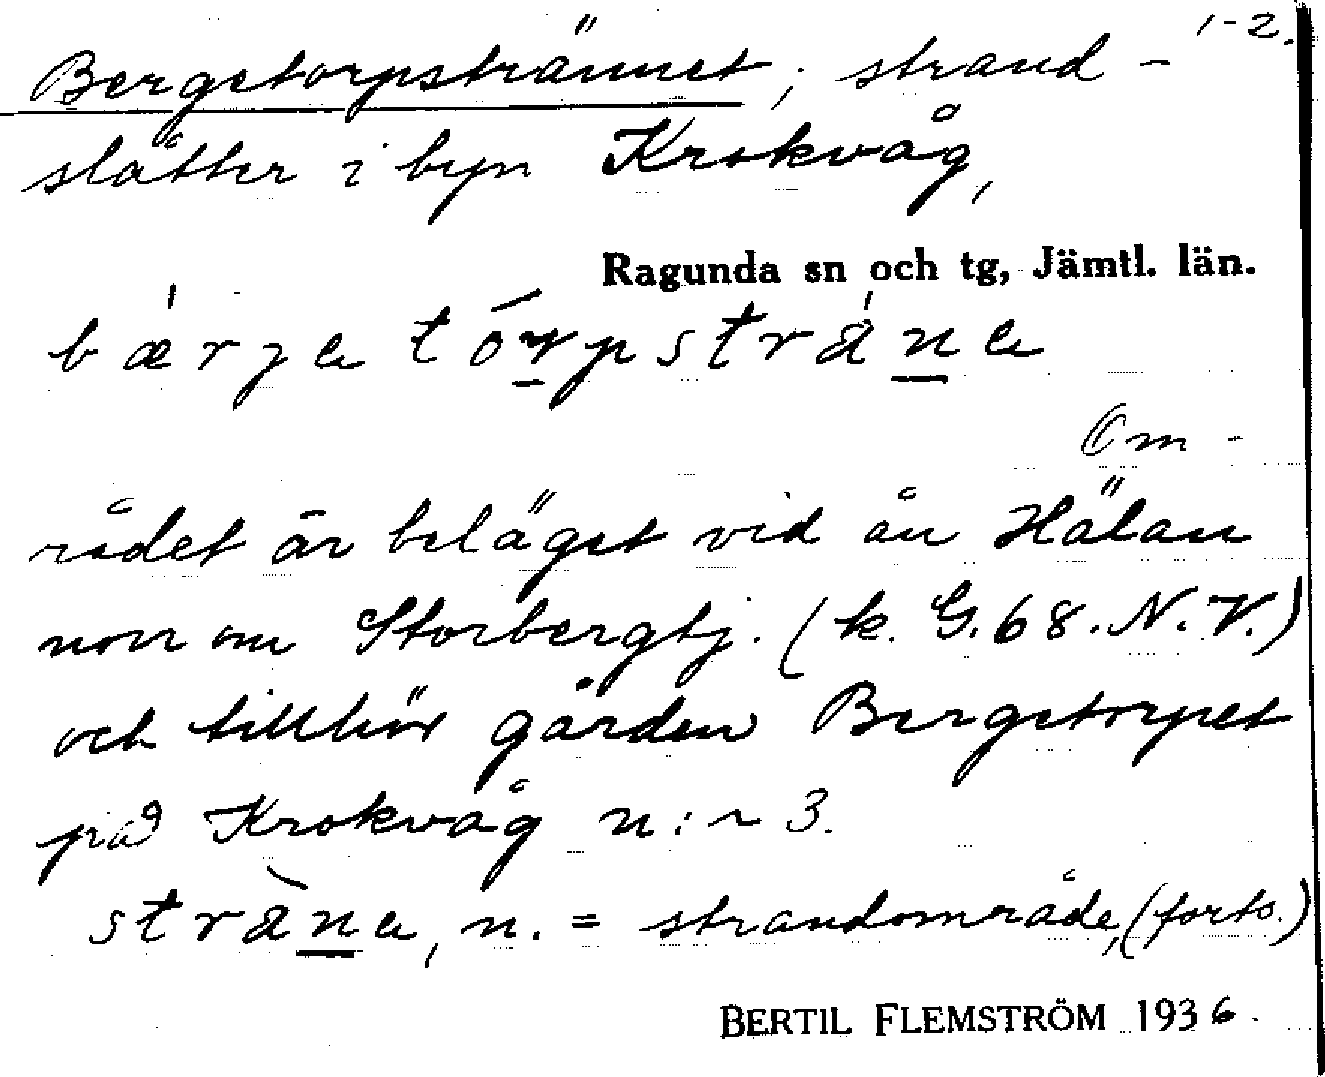 1-2.
Bergetorpstrännet, strand-
slåtter i byn Krokvåg,
Ragunda sn och tg, Jämtl. län.
Om-
rådet är beläget vid ån Hälan
norr om Storbergtj. (k. G. 68. N.V.)
och tillhör gården Bergetorpet
på Krokvåg n:r 3.
n. = strandområde, (forts.)
BERTIL FLEMSTRÖM 1936.